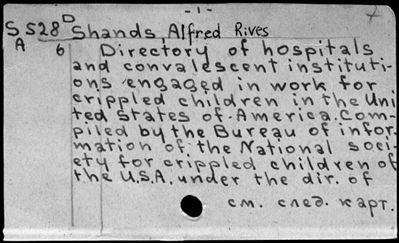 - 1 -
S S28 D Shands, Alfred Rives
A 6 Directory of hospitals
and convalescent instituti-
ons engaged in work for
crippled children in the Uni
ted States of America. Com-
piled by the Bureau of infor-
mation of the National soci-
ety for crippled children of
the U.S.A. under the dir. of
см. след. карт.